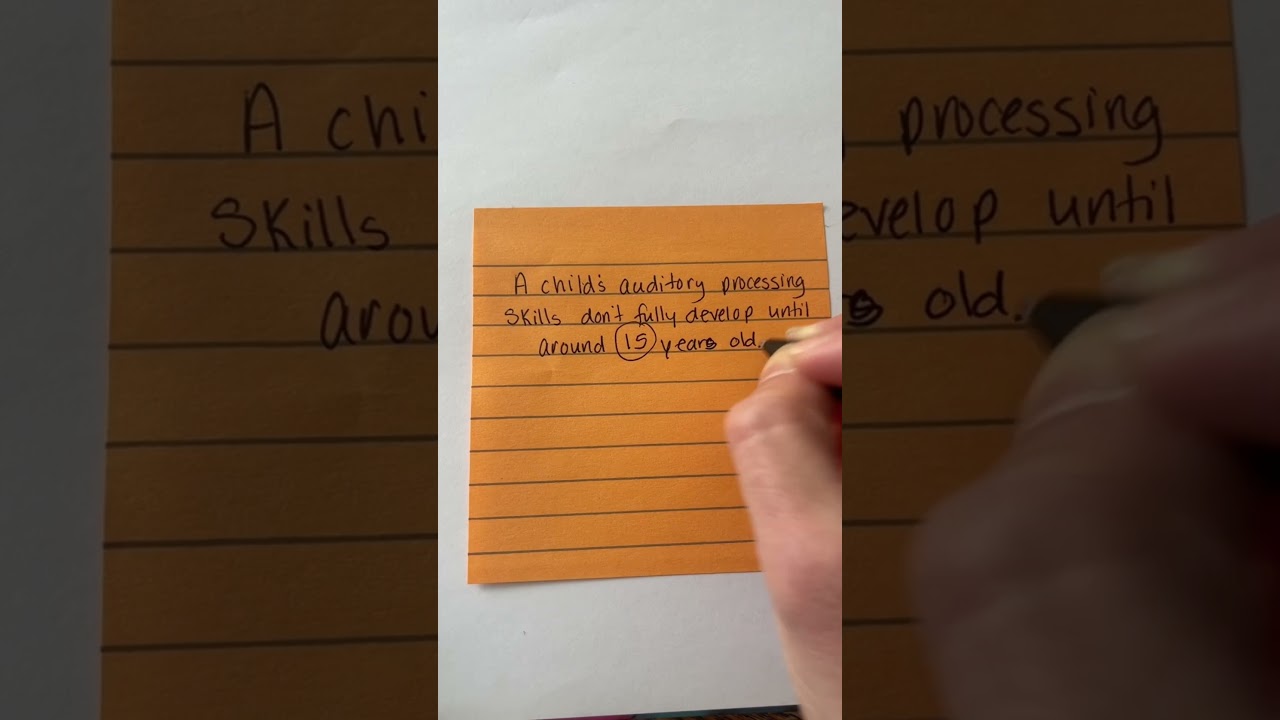 A child's auditory processing
skills don't fully develop until
around 15 years old.